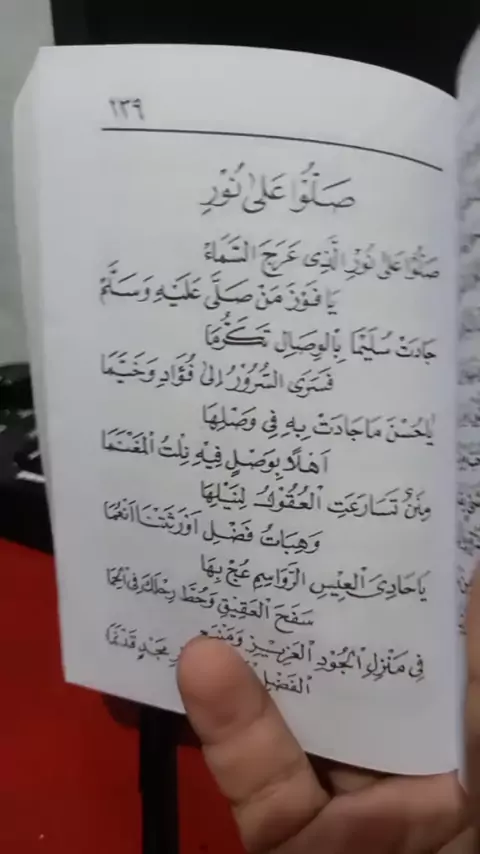 ١٣٩
صَلُّوْا عَلىٰ نُوْرِ
صَلُّوْا عَلىٰ نُوْرِ الَّذِى عَرَجَ السَّمَاءْ
يَا فَوْزَ مَنْ صَلَّى عَلَيْهِ وَسَلَّمْ
جَادَتْ سُلَيْمَا بِالْوِصَالِ تَكَرُّمَا
فَسَرَى السُّرُوْرُ اِلىٰ فُؤَادِ وَخَيَّمَا
يَاحُسْنَ مَاجَادَتْ بِهِ فِى وَصْلِهَا
اَهْلًا بِوَصْلٍ فِيْهِ نِلْتُ الْمَغْنَمَا
مِنَنٌ تَسَارَعَتِ الْعُقُوْلُ لِنَيْلِهَا
وَهِبَاتُ فَضْلٍ اَوْرَثَتْنَا اَنْعُمَا
يَاحَادِىَ الْعِيْسِ الرَّوَاسِمِ عُجْ بِهَا
سَفْحَ الْعَقِيْقِ وَحُطَّ رِحْلَكَ فِى الْحِمَا
فِى مَنْزِلِ الْجُوْدِ الْعَزِيْزِ وَمَنْبَعِ
الْفَضْلِ مَجْدٍ قَدْ نَمَا